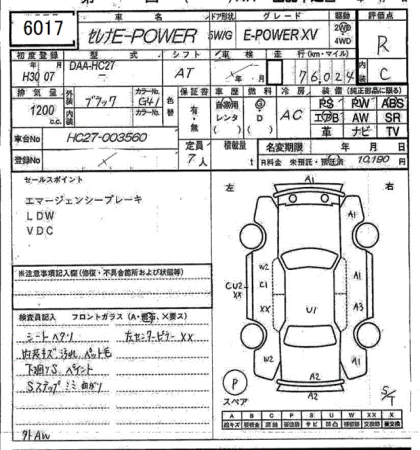 6017
車名 ドア形状 グレード 駆動 評価点
セレナE-POWER 5W/G E-POWER XV 2WD 4WD R
初度登録 型式 シフト 車検 走行(km・マイル)
H30 07 DAA-HC27 AT 年 月 76,024 C
排気量 外装 カラーNo. 色替 車歴 燃料 冷房 装備(純正部品に限る)
1200 ブラック G41 有・無 自家用 レンタ G D AC PS PW ABS
内装 カラーNo. エアB AW SR
革 ナビ TV
車台No HC27-003560 定員 積載量 名変期限 年 月 日
登録No 7人 t R料金 未預託・預託済 10,190 円
セールスポイント
エマージェンシーブレーキ
LDW
VDC
※注意事項記入欄(修復・不具合箇所および状態等)
検査員記入 フロントガラス(A・飛石、X要ス)
シートヘタリ 左センターピラーXX
内装キズ、汚れ ペット毛
下廻りS、ペイント
Sステップミミ曲がり
外AW
左 右
A1
W2 A1
CU2 XX C1 U1 A1
XX A3
W2 A1
A2
A2
P
スペア
S/T
A B C P S U W XX X